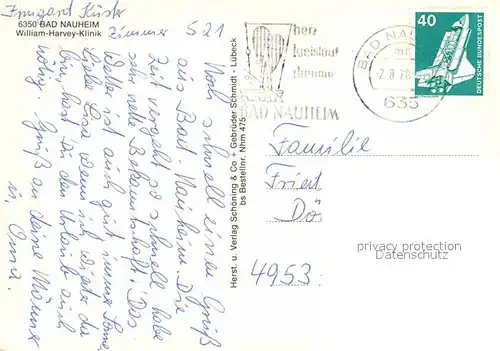 Irmgard Küster
6350 BAD NAUHEIM
William-Harvey-Klinik
Zimmer 521
Noch schnell einen Gruß
aus Bad-Nauheim. Die
Zeit vergeht so schnell habe
sehr nette Bekanntschaft. Das
Wetter ist auch gut meine Lena
Liebe Lena wenn ich wieder da
bin, hast Du den Urlaub auch
nötig. Gruß an deine Männer
u. Oma.
Herst. u. Verlag Schöning & Co + Gebrüder Schmidt - Lübeck
bs Bestellnr. Nhm 475
herz
kreislauf
rheuma
BAD NAUHEIM
BAD NAU
635
40
DEUTSCHE BUNDESPOST
Familie
Dö
4953
privacy protection
Datenschutz